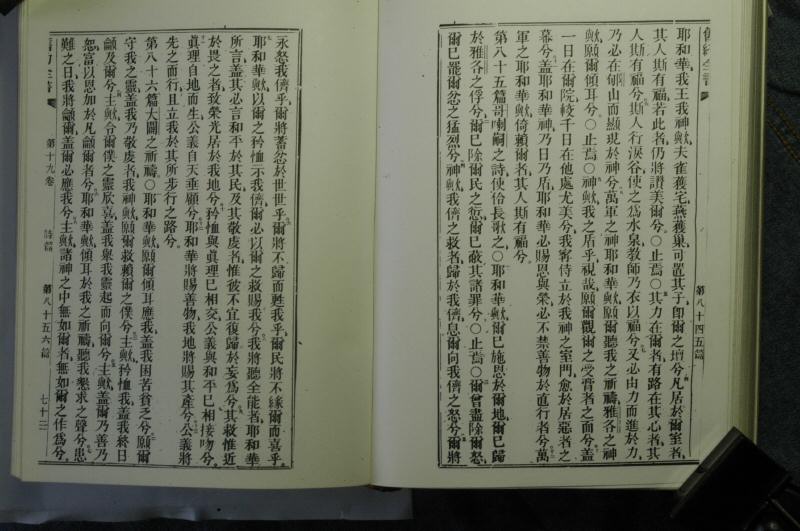 舊約全書
第八十四五篇
耶和華我王我神歟夫雀獲宅燕獲巢可置其子卽爾之壇兮凡居於爾室者
其人斯有福若此者仍將讃美爾兮○止焉○其力在爾者有路在其心者其
人斯有福兮斯人行淚谷使之爲水泉教師乃衣以福兮又必由力而進於力
乃必在郇山而顯現於神兮萬軍之神耶和華歟願爾聽我之祈禱雅各之神
歟願爾傾耳兮○止焉○神歟我之盾乎視哉願爾觀爾之受膏者之面兮蓋
一日在爾院較千日在他處尤美兮我寧侍立於我神之室門愈於居惡者之
幕兮蓋耶和華神乃日乃盾耶和華必賜恩與榮必不禁善物於直行者兮萬
軍之耶和華歟倚賴爾者其人斯有福兮
第八十五篇哥喇嗣之詩使伶長歌之○耶和華歟爾已施恩於爾地爾已歸
於雅各之俘兮爾已除爾民之愆爾已蔽其諸罪兮○止焉○爾曾盡除爾怒
爾已罷爾忿之猛烈兮神歟我儕之救者歸於我儕息爾向我儕之怒兮爾將
永怒我儕乎爾將蓄忿於世世乎爾將不歸而甦我乎爾民將不緣爾而喜乎
耶和華歟以爾之矜恤示我儕爾必以爾之救賜我兮我將聽全能者耶和華
所言蓋其必言和平於其民及其敬虔者惟彼不宜復歸於妄爲兮其救惟近
於畏之者致榮光居於我地兮矜恤與眞理已相交公義與和平已相接吻兮
眞理自地而生公義自天垂顧兮耶和華將賜善物我地將賜其產兮公義將
先之而行且立我於其所步行之路兮
第八十六篇大闢之祈禱○耶和華歟願爾傾耳應我蓋我困苦貧乏兮願爾
守我之靈蓋我乃敬虔者我神歟願爾救賴爾之僕兮主歟矜恤我蓋我終日
龥及爾兮主歟令爾僕之靈欣喜蓋我舉我靈起而向爾兮主歟蓋爾乃善乃
恕富以恩加於凡龥爾者兮耶和華歟傾耳於我之祈禱聽我懇求之聲兮患
難之日我將龥爾蓋爾必應我兮主歟諸神之中無如爾者無如爾之作爲兮
第十九卷
詩篇
第八十五六篇
七十二